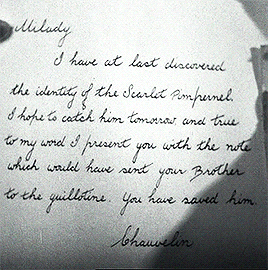 Milady
I have at last discovered
the identity of the Scarlet Pimpernel.
I hope to catch him tomorrow and true
to my word I present you with the note
which would have sent your Brother
to the guillotine. You have saved him.
Chauvelin